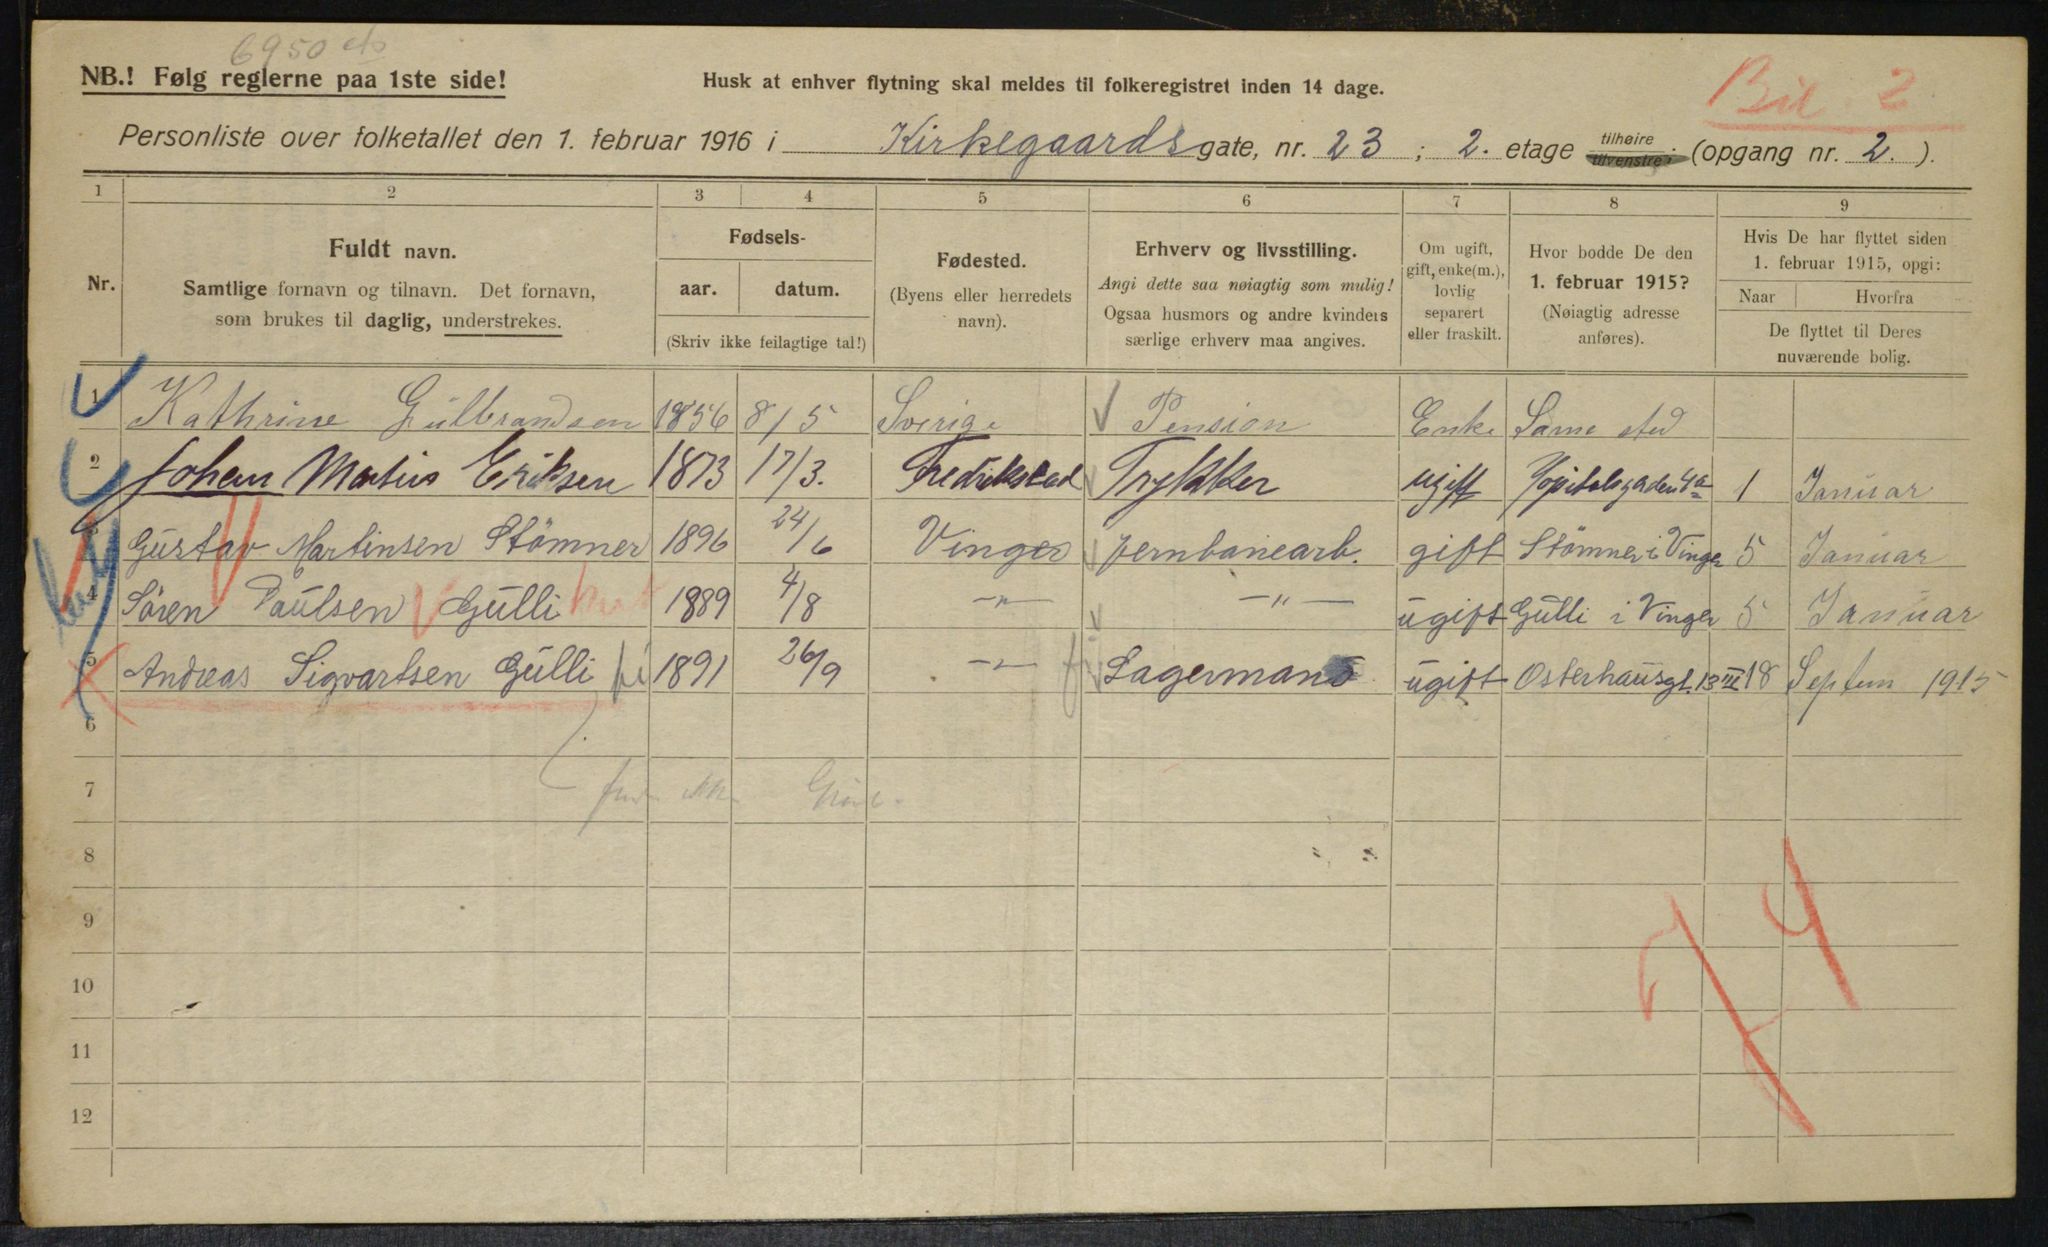 6950
NB.! Følg reglerne paa 1ste side!
Husk at enhver flytning skal meldes til folkeregistret inden 14 dage.
Bil. 2
Personliste over folketallet den 1. februar 1916 i Kirkegaardsgate, nr. 23 ; 2. etage tilhøire tilvenstre (opgang nr. 2. ).
1 2 3 4 5 6 7 8 9
Nr.
Fuldt navn.
Samtlige fornavn og tilnavn. Det fornavn,
som brukes til daglig, understrekes.
Fødsels-
aar. datum.
(Skriv ikke feilagtige tal!)
Fødested.
(Byens eller herredets
navn).
Erhverv og livsstilling.
Angi dette saa nøiagtig som mulig!
Ogsaa husmors og andre kvinders
særlige erhverv maa angives.
Om ugift,
gift, enke(m.),
lovlig
separert
eller fraskilt.
Hvor bodde De den
1. februar 1915?
(Nøiagtig adresse
anføres).
Hvis De har flyttet siden
1. februar 1915, opgi:
Naar Hvorfra
De flyttet til Deres
nuværende bolig.
1 Kathrine Gulbrandsen 1856 8/5 Sverige Pension Enke Same sted
2 Johan Martius Eriksen 1873 17/3. Fredrikstad Trykker ugift 1 Januar
3 Gustav Martinsen Stömner 1896 24/6 Vinger Jernbanearb. gift Stömner i Vinger 5 Januar
4 Sören Paulsen Gulli 1889 4/8 —"— —"— ugift Gulli i Vinger 5 Januar
5 Andreas Sigvartsen Gulli 1891 26/9 —"— Lagermand ugift Osterhausgt. 13 III 18 Septem 1915
6
7
8
9
10
11
12